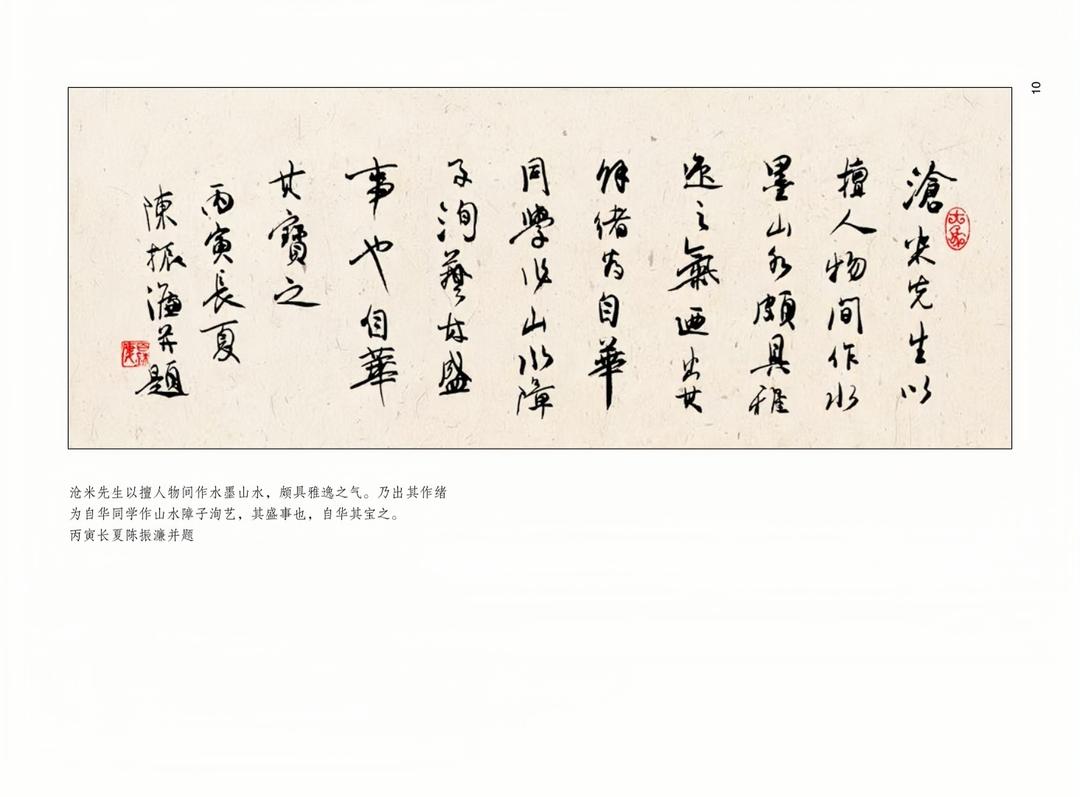 10
滄米先生以
擅人物间作水
墨山水頗具雅
逸之氣廼出其
餘绪为自華
同學作山水障
子洵藝林盛
事也自華
其寶之
丙寅長夏
陳振濂并題
沧米先生以擅人物间作水墨山水，颇具雅逸之气。乃出其作绪
为自华同学作山水障子洵艺，其盛事也，自华其宝之。
丙寅长夏陈振濂并题